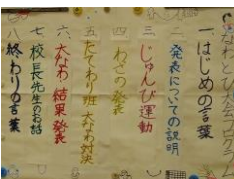 なわとび大会プログラム
一、はじめの言葉
二、発表についての説明
三、じゅんび運動
四、わざの発表
五、たてわり班 大なわ対決
六、大なわ 結果発表
七、校長先生のお話
八、終わりの言葉